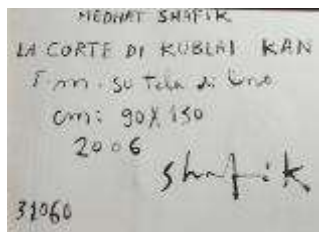 MEDHAT SHAFIK
LA CORTE DI KUBLAI KAN
T.m. su Tela di lino
cm: 90X150
2006
Shafik
31060